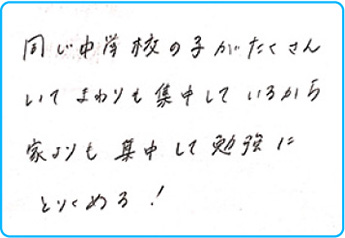 同じ中学校の子がたくさん
いてまわりも集中しているから
家よりも集中して勉強に
とりくめる!